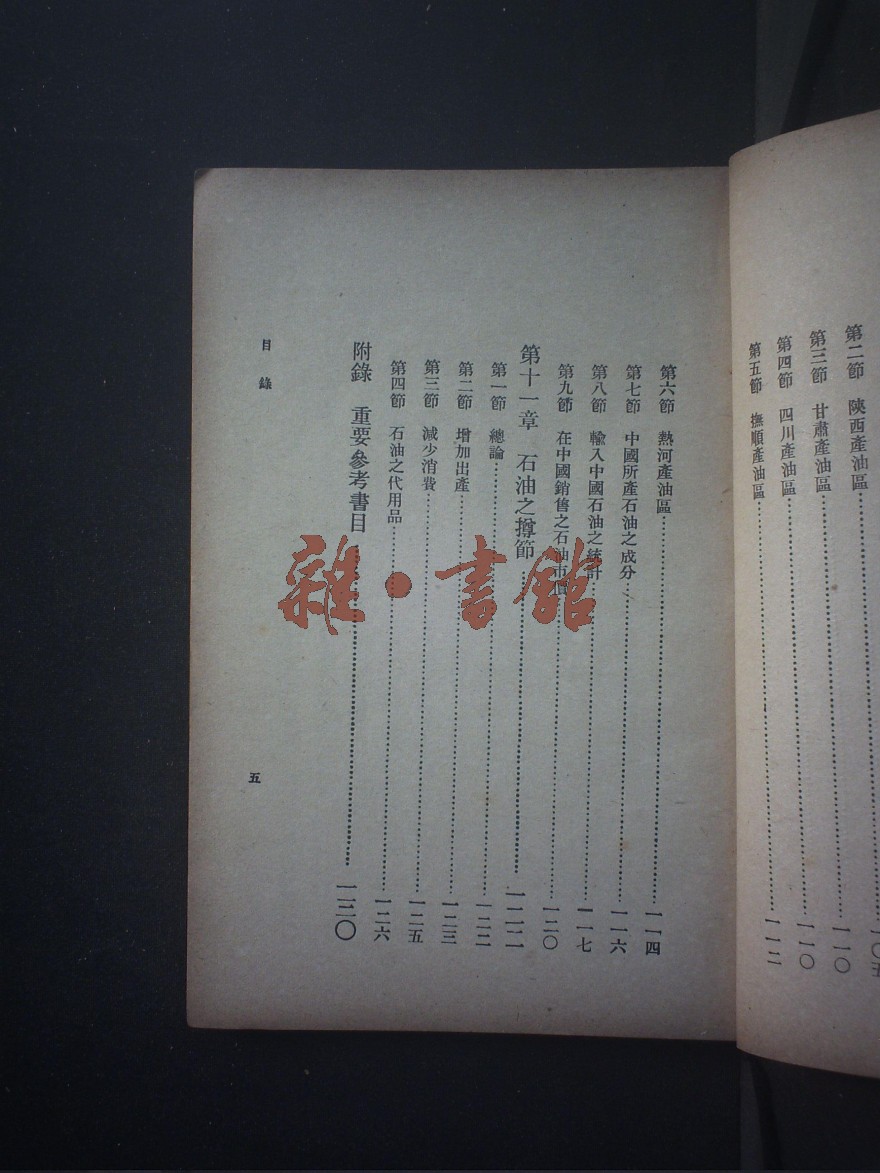 第二節 陝西產油區 一〇五
第三節 甘肅產油區 一一〇
第四節 四川產油區 一一〇
第五節 撫順產油區 一一二
第六節 熱河產油區 一一四
第七節 中國所產石油之成分 一一六
第八節 輸入中國石油之統計 一一七
第九節 在中國銷售之石油市價 一二〇
第十一章 石油之撙節 一二二
第一節 總論 一二二
第二節 增加出產 一二三
第三節 減少消費 一二五
第四節 石油之代用品 一二六
附錄 重要參考書目 一三〇
目錄
五
雜·書館